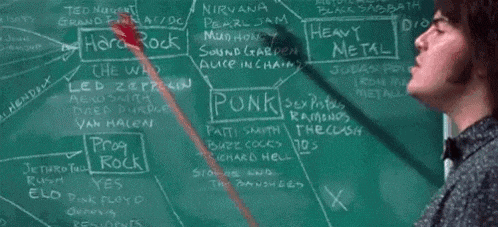 TED NUGENT
GRAND
AC/DC
Hard Rock
THE WHO
LED ZEPPELIN
AEROSMITH
DEEP PURPLE
VAN HALEN
HENDRIX
Prog Rock
JETHRO TULL
RUSH
ELO
YES
PINK FLOYD
GENESIS
RESIDENTS
NIRVANA
PEARL JAM
MUDHONEY
SOUNDGARDEN
ALICE IN CHAINS
PUNK
PATTI SMITH
BUZZCOCKS
RICHARD HELL
SIOUXSIE AND
THE BANSHEES
SEX PISTOLS
RAMONES
THE CLASH
X
BLACK SABBATH
HEAVY METAL
JUDAS
IRON
METALL